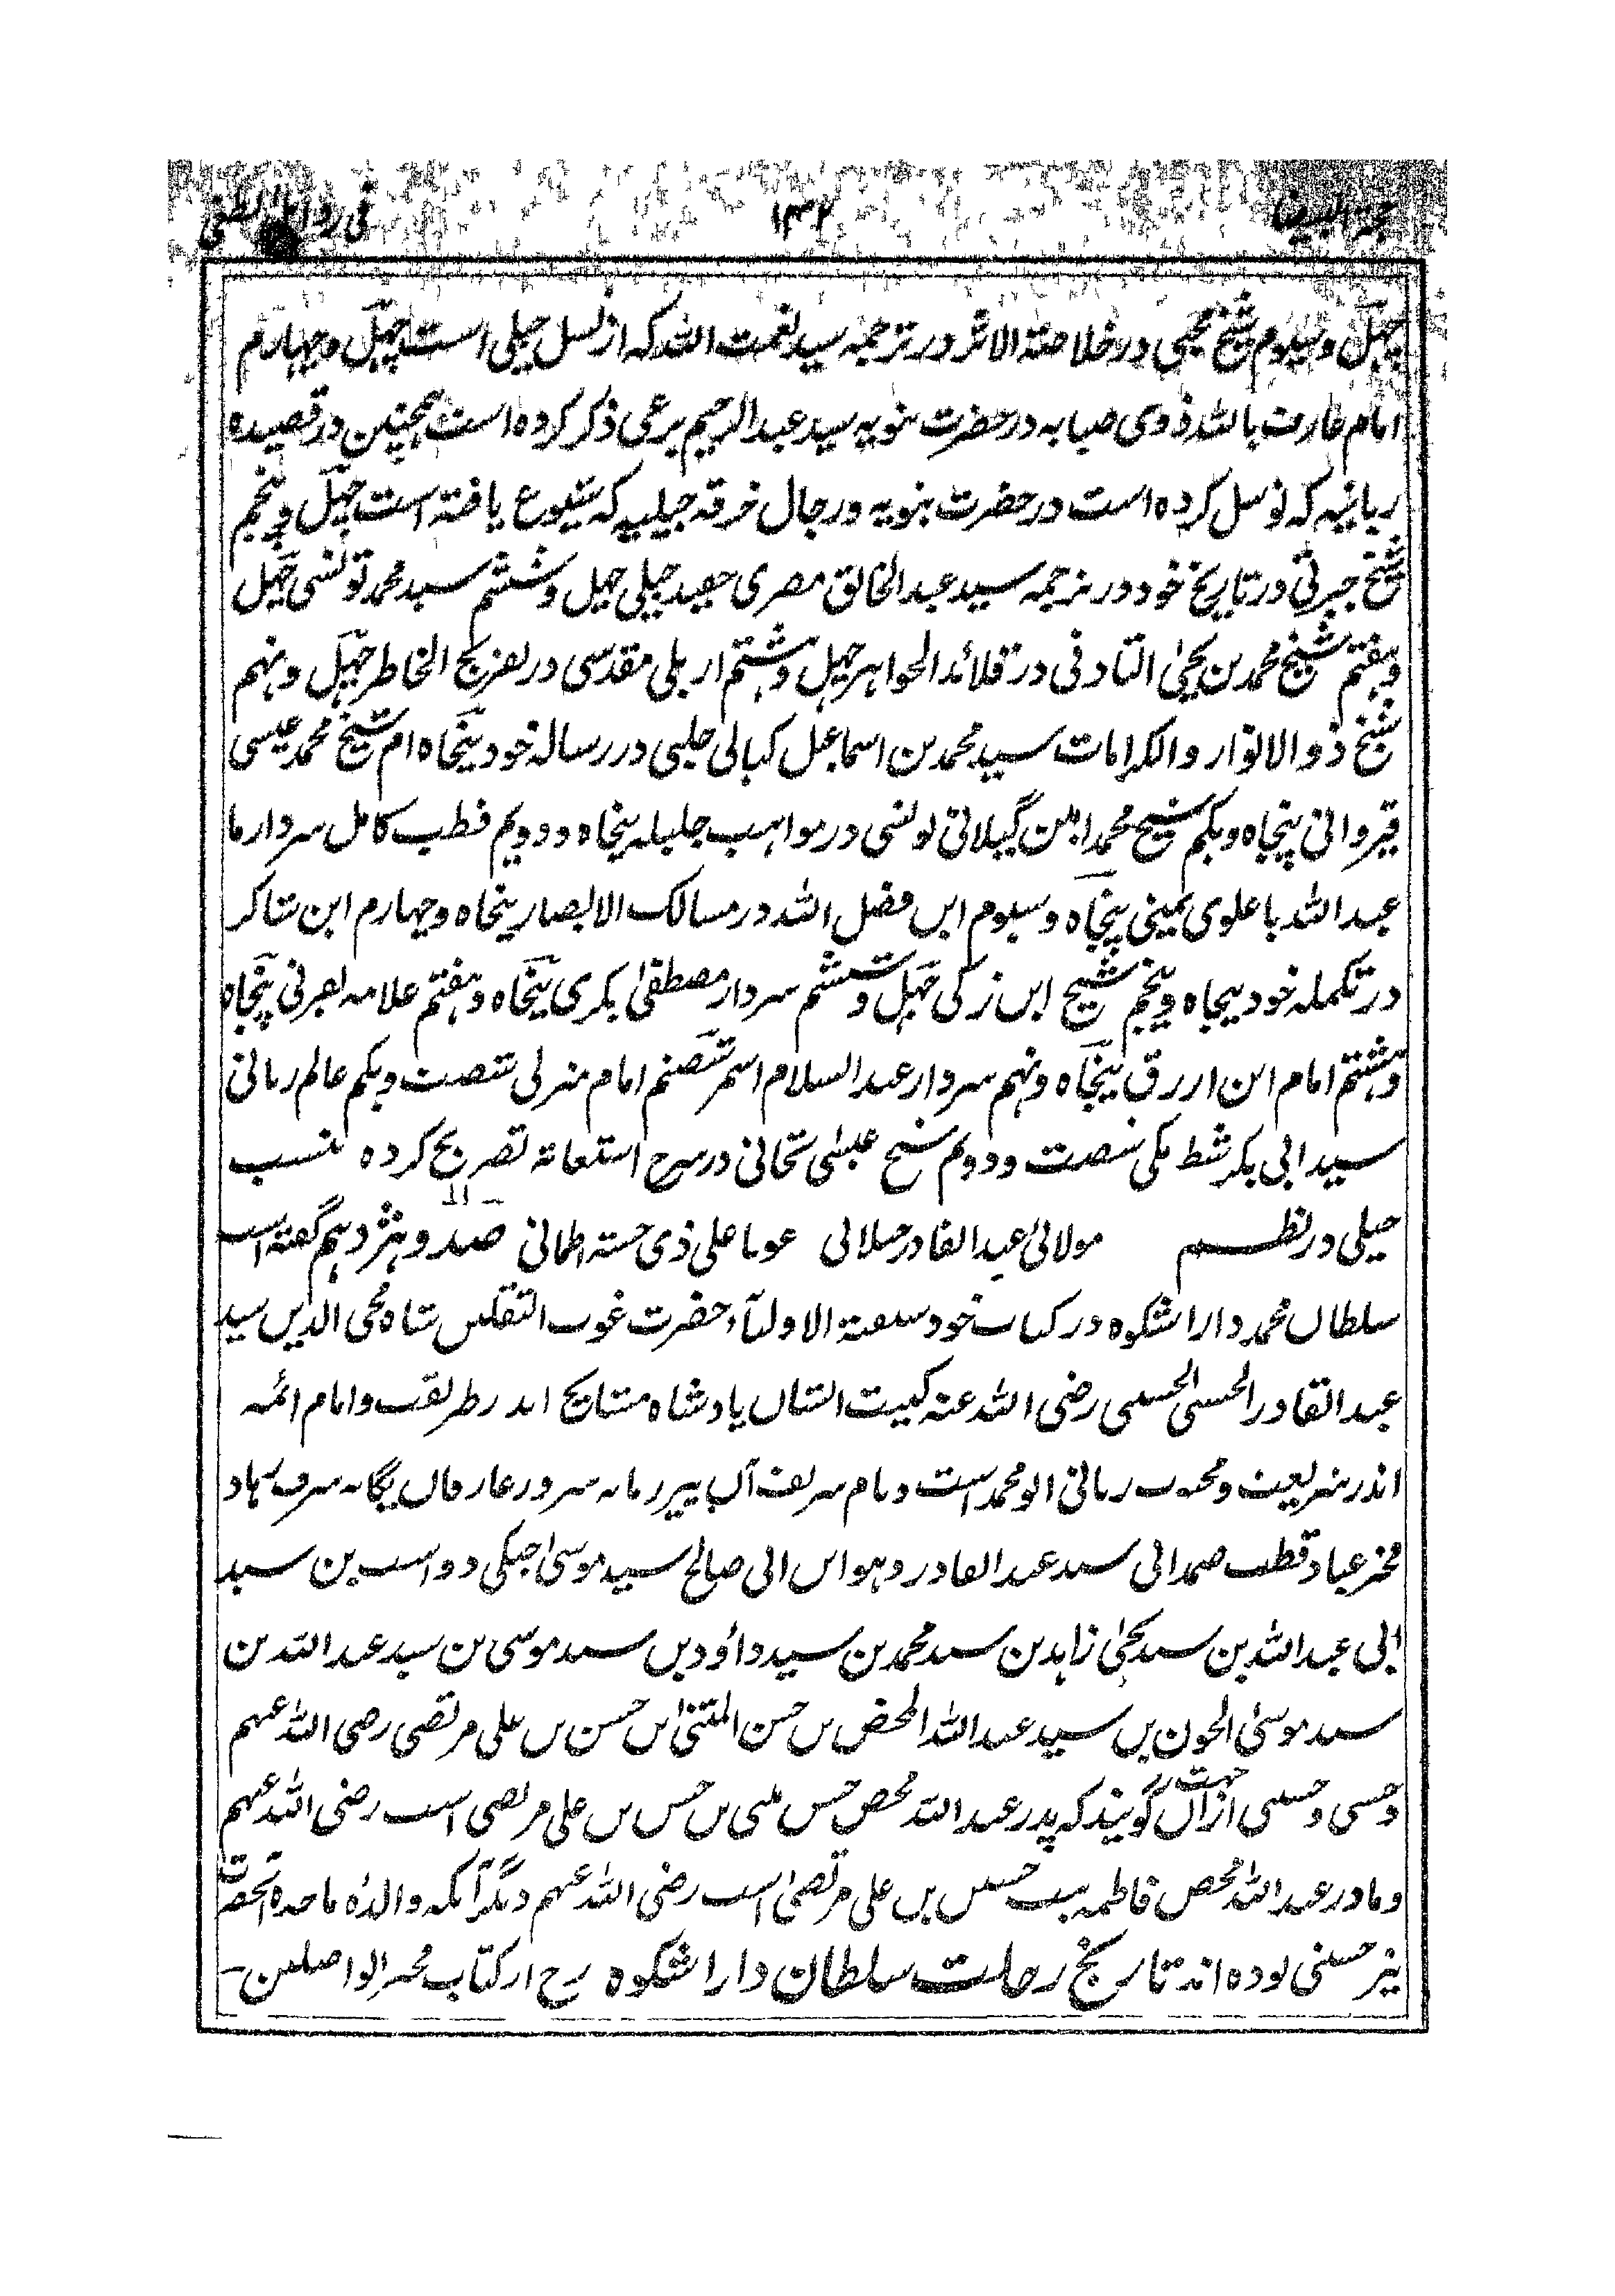 حجة البیضا ۱۳۲ فی رد
چہل و سیوم شیخ محبی در خلاصۃ الاثر در ترجمہ سید نعمت اللہ کہ از نسل جیلی است چہل و چہارم
امام عارف باللہ ذوی صبابہ در حضرت بنویہ سید عبد الرحیم برعی ذکر کردہ است ہمچنین در قصیدہ
ربانیہ کہ توسل کردہ است در حضرت بنویہ و رجال خرقہ جیلیہ کہ شیوع یافتہ است چہل و پنجم
شیخ جبرتی در تاریخ خود در ترجمہ سید عبد الخالق مصری حفید جیلی چہل و ششم سید محمد تونسی چہل
و ہفتم شیخ محمد بن یحییٰ التادفی در قلائد الجواہر چہل و ہشتم اربلی مقدسی در تفریح الخاطر چہل و نہم
شیخ ذو الانوار و الکرامات سید محمد بن اسماعیل کیالی حلبی در رسالہ خود پنجاہ ام شیخ محمد عیسی
قیروانی پنجاہ و یکم شیخ محمد امین گیلانی تونسی در مواہب جلیلہ پنجاہ و دویم قطب کامل سردار ما
عبد اللہ باعلوی یمینی پنجاہ و سیوم ابن فضل اللہ در مسالک الابصار پنجاہ و چہارم ابن شاکر
در تکملہ خود پنجاہ و پنجم شیخ ابن زکی چہل و ششم سردار مصطفیٰ بکری پنجاہ و ہفتم علامہ پنجاہ
و ہشتم امام ابن ازرق پنجاہ و نہم سردار عبد السلام اسمر شصتم امام منزلی شصت و یکم عالم ربانی
سید ابی بکر شطا مکی شصت و دویم شیخ عیسٰی در شرح استعانۃ تصریح کردہ نسب
جیلی در نظم مولائی عبد القادر جیلانی علی ذی صد و ہژدہم گفتہ است
سلطان محمد دارا شکوہ در کتاب خود سفینۃ الاولیآء حضرت غوث الثقلین شاہ محی الدین سید
عبد القادر الحسنی الحسینی رضی اللہ عنہ کنیت ایشان بادشاہ مشایخ اندر طریقت و امام ائمہ
اندر شریعت و محبوب ربانی ابو محمد است و نام شریف آں پیر زمانہ سرور عارفاں یگانہ
فخر عباد قطب صمدانی سید عبد القادر و ہو ابن ابی صالح سید موسیٰ جنگی دوست بن سید
ابی عبد اللہ بن سید یحییٰ زاہد بن سید محمد بن سید داؤد بن سید موسی بن سید عبد اللہ بن
سید موسیٰ الجون بن سید عبد اللہ المحض بن حسن المثنیٰ بن حسن بن علی مرتضی رضی اللہ عنہم
و حسنی و حسینی ازاں جہت گویند کہ پدر عبد اللہ محض حسن مثنی بن حسن بن علی مرتضی است رضی اللہ عنہم
و مادر عبد اللہ محض فاطمہ بنت حسین بن علی مرتضیٰ است رضی اللہ عنہم دیگر آنکہ والدۂ ماجدہ آنحضرت
نیز حسینی بودہ اند تاریخ رحلت سلطان دارا شکوہ رح از کتاب مخبر الواصلین -